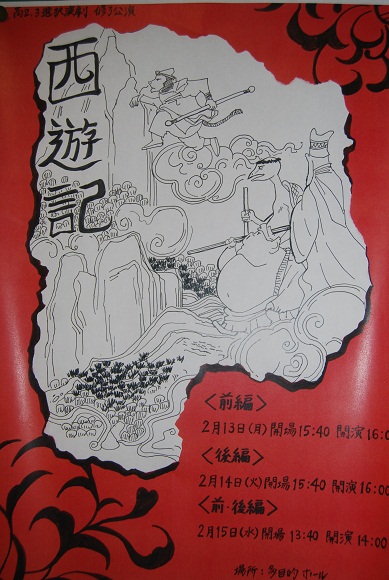 高2.3選択演劇 修了公演
西遊記
<前編>
2月13日(月)開場15:40 開演16:0
<後編>
2月14日(火)開場15:40 開演16:00
<前・後編>
2月15日(水)開場 13:40 開演14:00
場所:多目的ホール